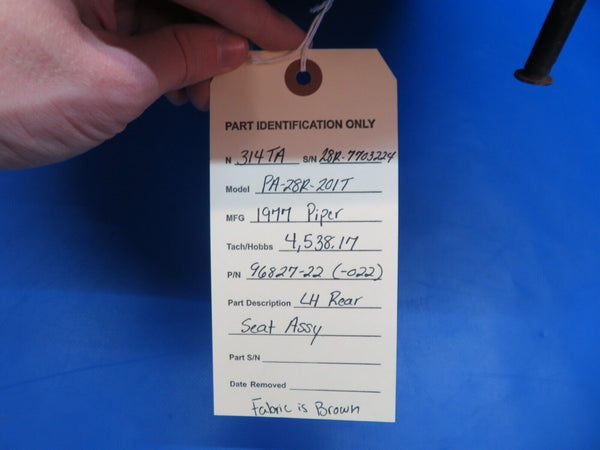 PART IDENTIFICATION ONLY
N 314TA S/N 28R-7703224
Model PA-28R-201T
MFG 1977 Piper
Tach/Hobbs 4,538.17
P/N 96827-22 (-022)
Part Description LH Rear
Seat Assy
Part S/N
Date Removed
Fabric is Brown